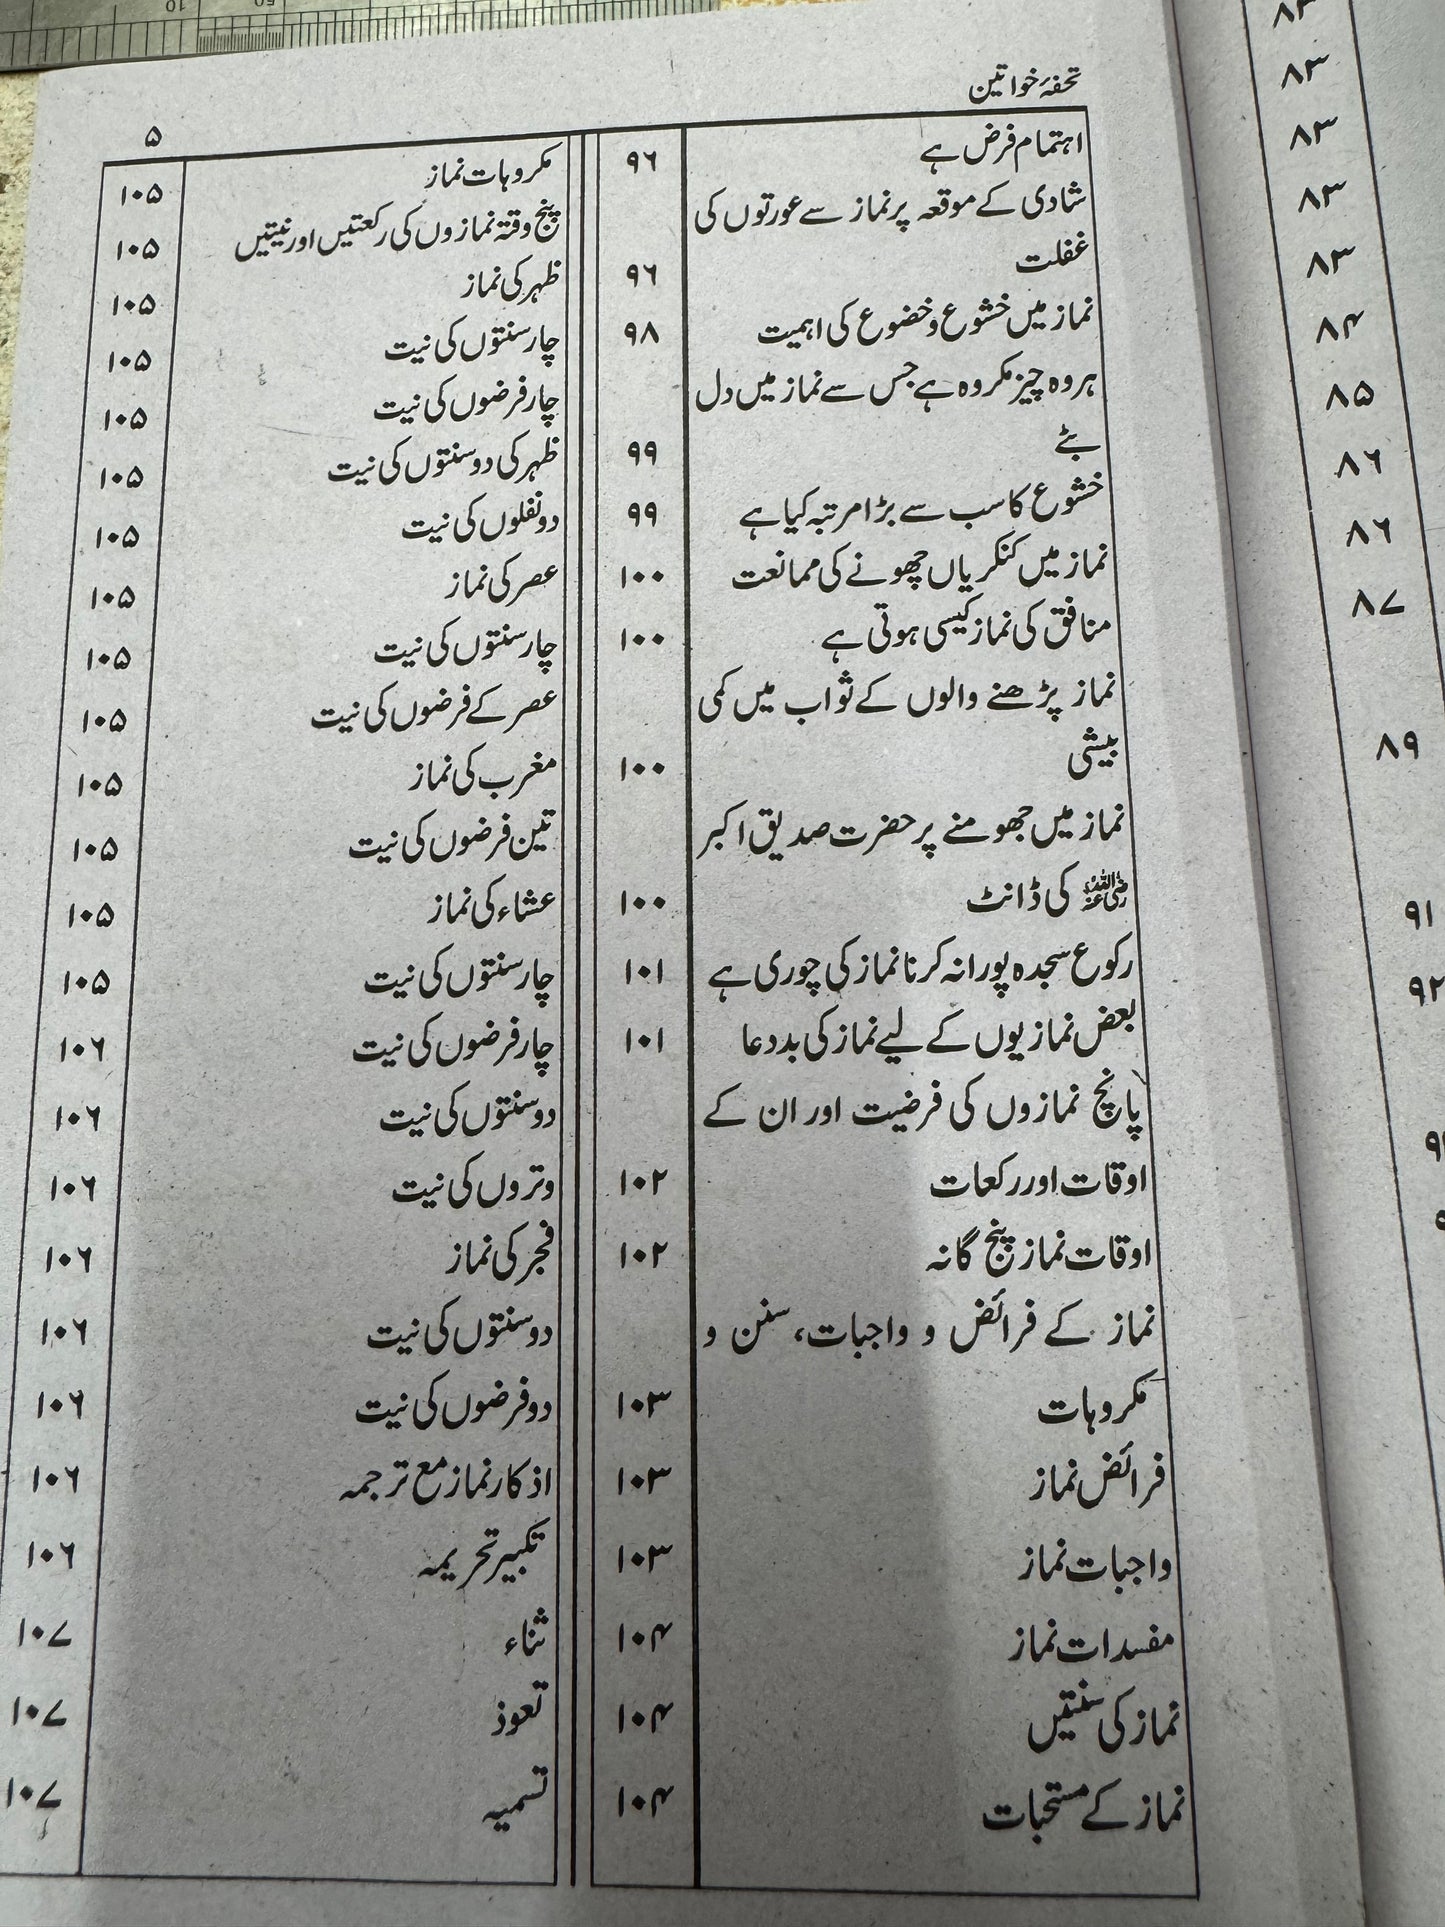 تحفۂ خواتین
۵
اہتمام فرض ہے ۹۶
شادی کے موقعہ پر نماز سے عورتوں کی
غفلت ۹۶
نماز میں خشوع و خضوع کی اہمیت ۹۸
ہر وہ چیز مکروہ ہے جس سے نماز میں دل
بٹے ۹۹
خشوع کا سب سے بڑا مرتبہ کیا ہے ۹۹
نماز میں کنکریاں چھونے کی ممانعت ۱۰۰
منافق کی نماز کیسی ہوتی ہے ۱۰۰
نماز پڑھنے والوں کے ثواب میں کمی
بیشی ۱۰۰
نماز میں جھومنے پر حضرت صدیق اکبر
رضی اللہ عنہ کی ڈانٹ ۱۰۰
رکوع سجدہ پورا نہ کرنا نماز کی چوری ہے ۱۰۱
بعض نمازیوں کے لیے نماز کی بددعا ۱۰۱
پانچ نمازوں کی فرضیت اور ان کے
اوقات اور رکعات ۱۰۲
اوقات نماز پنج گانہ ۱۰۲
نماز کے فرائض و واجبات، سنن و
مکروہات ۱۰۳
فرائض نماز ۱۰۳
واجبات نماز ۱۰۳
مفسدات نماز ۱۰۴
نماز کی سنتیں ۱۰۴
نماز کے مستحبات ۱۰۴
مکروہات نماز ۱۰۵
پنج وقتہ نمازوں کی رکعتیں اور نیتیں ۱۰۵
ظہر کی نماز ۱۰۵
چار سنتوں کی نیت ۱۰۵
چار فرضوں کی نیت ۱۰۵
ظہر کی دو سنتوں کی نیت ۱۰۵
دو نفلوں کی نیت ۱۰۵
عصر کی نماز ۱۰۵
چار سنتوں کی نیت ۱۰۵
عصر کے فرضوں کی نیت ۱۰۵
مغرب کی نماز ۱۰۵
تین فرضوں کی نیت ۱۰۵
عشاء کی نماز ۱۰۵
چار سنتوں کی نیت ۱۰۵
چار فرضوں کی نیت ۱۰۶
دو سنتوں کی نیت ۱۰۶
وتروں کی نیت ۱۰۶
فجر کی نماز ۱۰۶
دو سنتوں کی نیت ۱۰۶
دو فرضوں کی نیت ۱۰۶
اذکار نماز مع ترجمہ ۱۰۶
تکبیر تحریمہ ۱۰۶
ثناء ۱۰۷
تعوذ ۱۰۷
تسمیہ ۱۰۷
۸۳
۸۳
۸۳
۸۳
۸۳
۸۴
۸۵
۸۶
۸۶
۸۷
۸۹
۹۱
۹۲